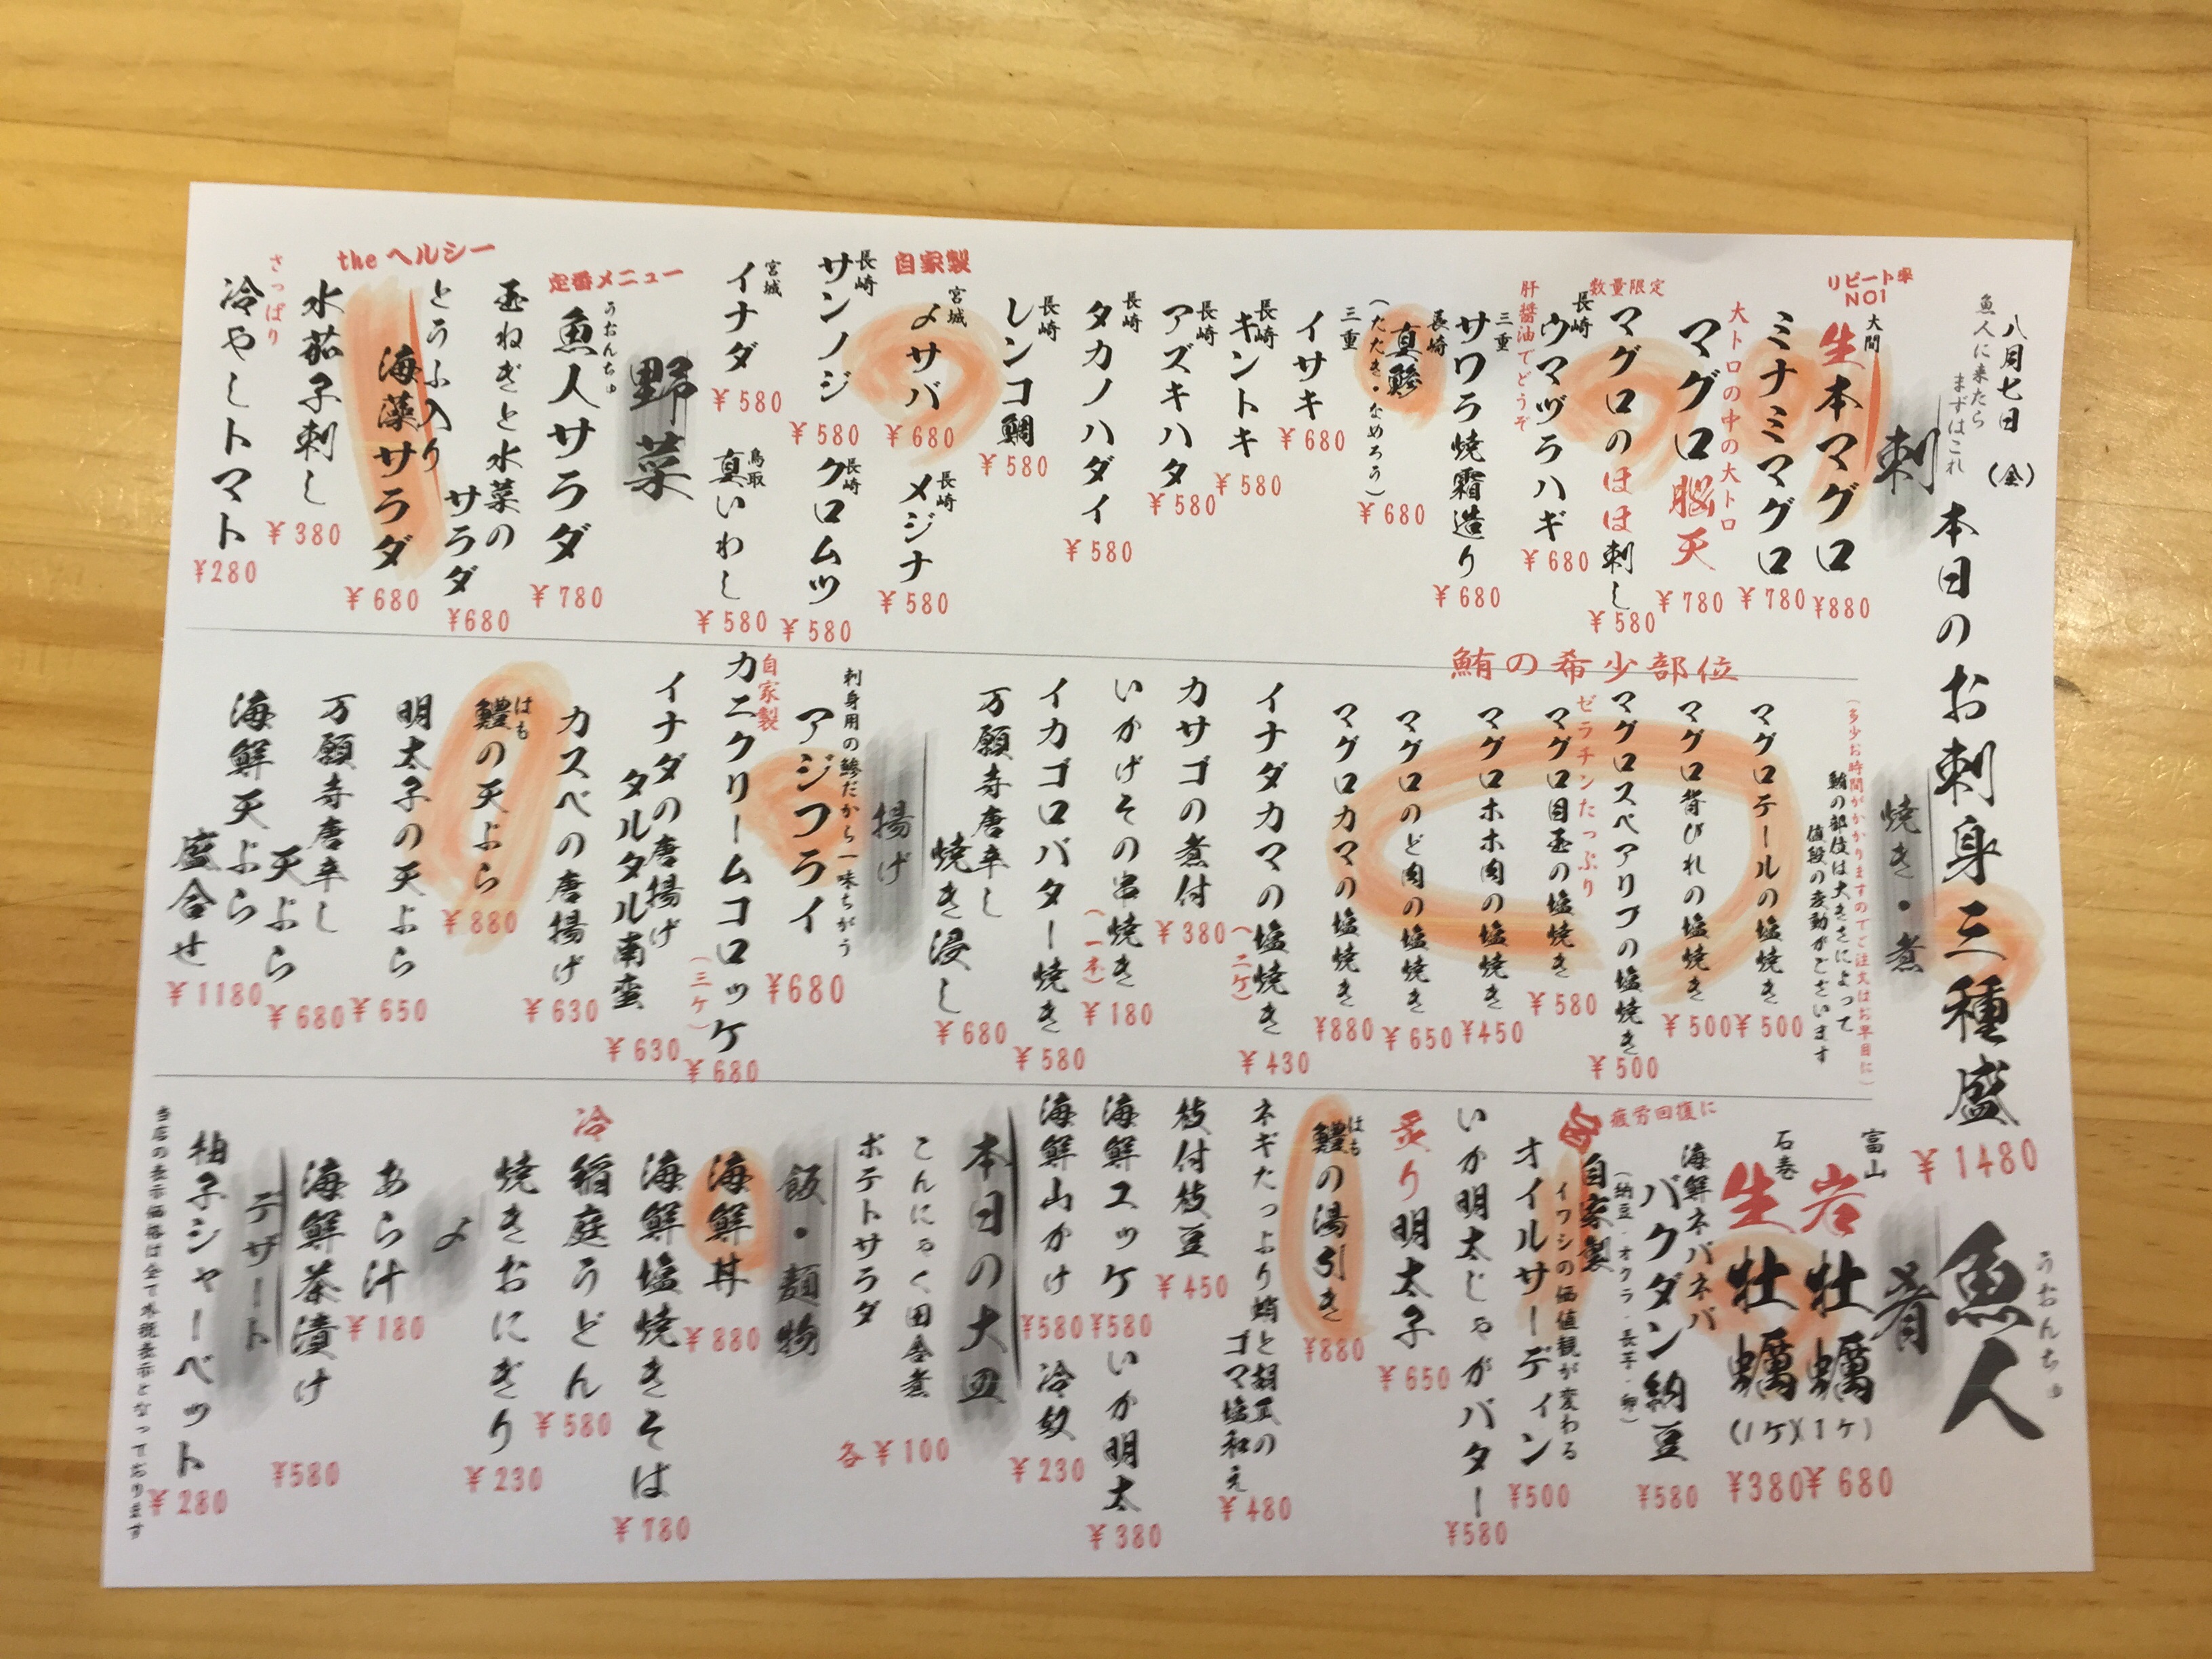 八月七日(金)
魚人に来たら
まずはこれ
本日のお刺身三種盛
¥1480
うおんちゅ
魚人
刺
リピート率
NO1
大間
生本マグロ
¥880
ミナミマグロ
¥780
大トロの中の大トロ
マグロ脳天
¥780
数量限定
マグロのほほ刺し
¥580
長崎
ウマヅラハギ
¥680
肝醤油でどうぞ
三重
サワラ焼霜造り
¥680
長崎
真鯵
(たたき・なめろう)
¥680
三重
イサキ
¥680
長崎
キントキ
¥580
長崎
アズキハタ
¥580
長崎
タカノハダイ
¥580
長崎
レンコ鯛
¥580
自家製
宮城
〆サバ
¥680
長崎
メジナ
¥580
長崎
サンノジ
¥580
長崎
クロムツ
¥580
宮城
イナダ
¥580
鳥取
真いわし
¥580
野菜
定番メニュー
うおんちゅ
魚人サラダ
¥780
玉ねぎと水菜の
サラダ
¥680
theヘルシー
とうふ入り
海藻サラダ
¥680
水茄子刺し
¥380
さっぱり
冷やしトマト
¥280
焼き・煮
(多少お時間がかかりますのでご注文はお早目に)
鮪の部位は大きさによって
値段の変動がございます
鮪の希少部位
マグロテールの塩焼き
¥500
マグロ背びれの塩焼き
¥500
マグロスペアリブの塩焼き
¥500
ゼラチンたっぷり
マグロ目玉の塩焼き
¥580
マグロホホ肉の塩焼き
¥450
マグロのど肉の塩焼き
¥650
マグロカマの塩焼き
¥880
イナダカマの塩焼き
(二ケ)
¥430
カサゴの煮付
¥380
いかげその串焼き
(一本)
¥180
イカゴロバター焼き
¥580
万願寺唐辛し
焼き浸し
¥680
揚げ
刺身用の鯵だから一味ちがう
アジフライ
¥680
自家製
カニクリームコロッケ
(三ケ)
¥680
イナダの唐揚げ
タルタル南蛮
¥630
カスベの唐揚げ
¥630
はも
鱧の天ぷら
¥880
明太子の天ぷら
¥650
万願寺唐辛し
天ぷら
¥680
海鮮天ぷら
盛合せ
¥1180
肴
富山
岩牡蠣
(1ケ)
¥680
石巻
生牡蠣
(1ケ)
¥380
疲労回復に
海鮮ネバネバ
バクダン納豆
(納豆・オクラ・長芋・卵)
¥580
旨
自家製
イワシの価値観が変わる
オイルサーディン
¥500
いか明太じゃがバター
¥580
炙り明太子
¥650
はも
鱧の湯引き
¥880
ネギたっぷり蛸と胡瓜の
ゴマ塩和え
¥480
枝付枝豆
¥450
海鮮ユッケ
¥580
いか明太
¥380
海鮮山かけ
¥580
冷奴
¥230
本日の大皿
こんにゃく田舎煮
ポテトサラダ
各¥100
飯・麺物
海鮮丼
¥880
海鮮塩焼きそば
¥780
冷
稲庭うどん
¥580
焼きおにぎり
¥230
〆
あら汁
¥180
海鮮茶漬け
¥580
デザート
柚子シャーベット
¥280
当店の表示価格は全て本税表示となっております